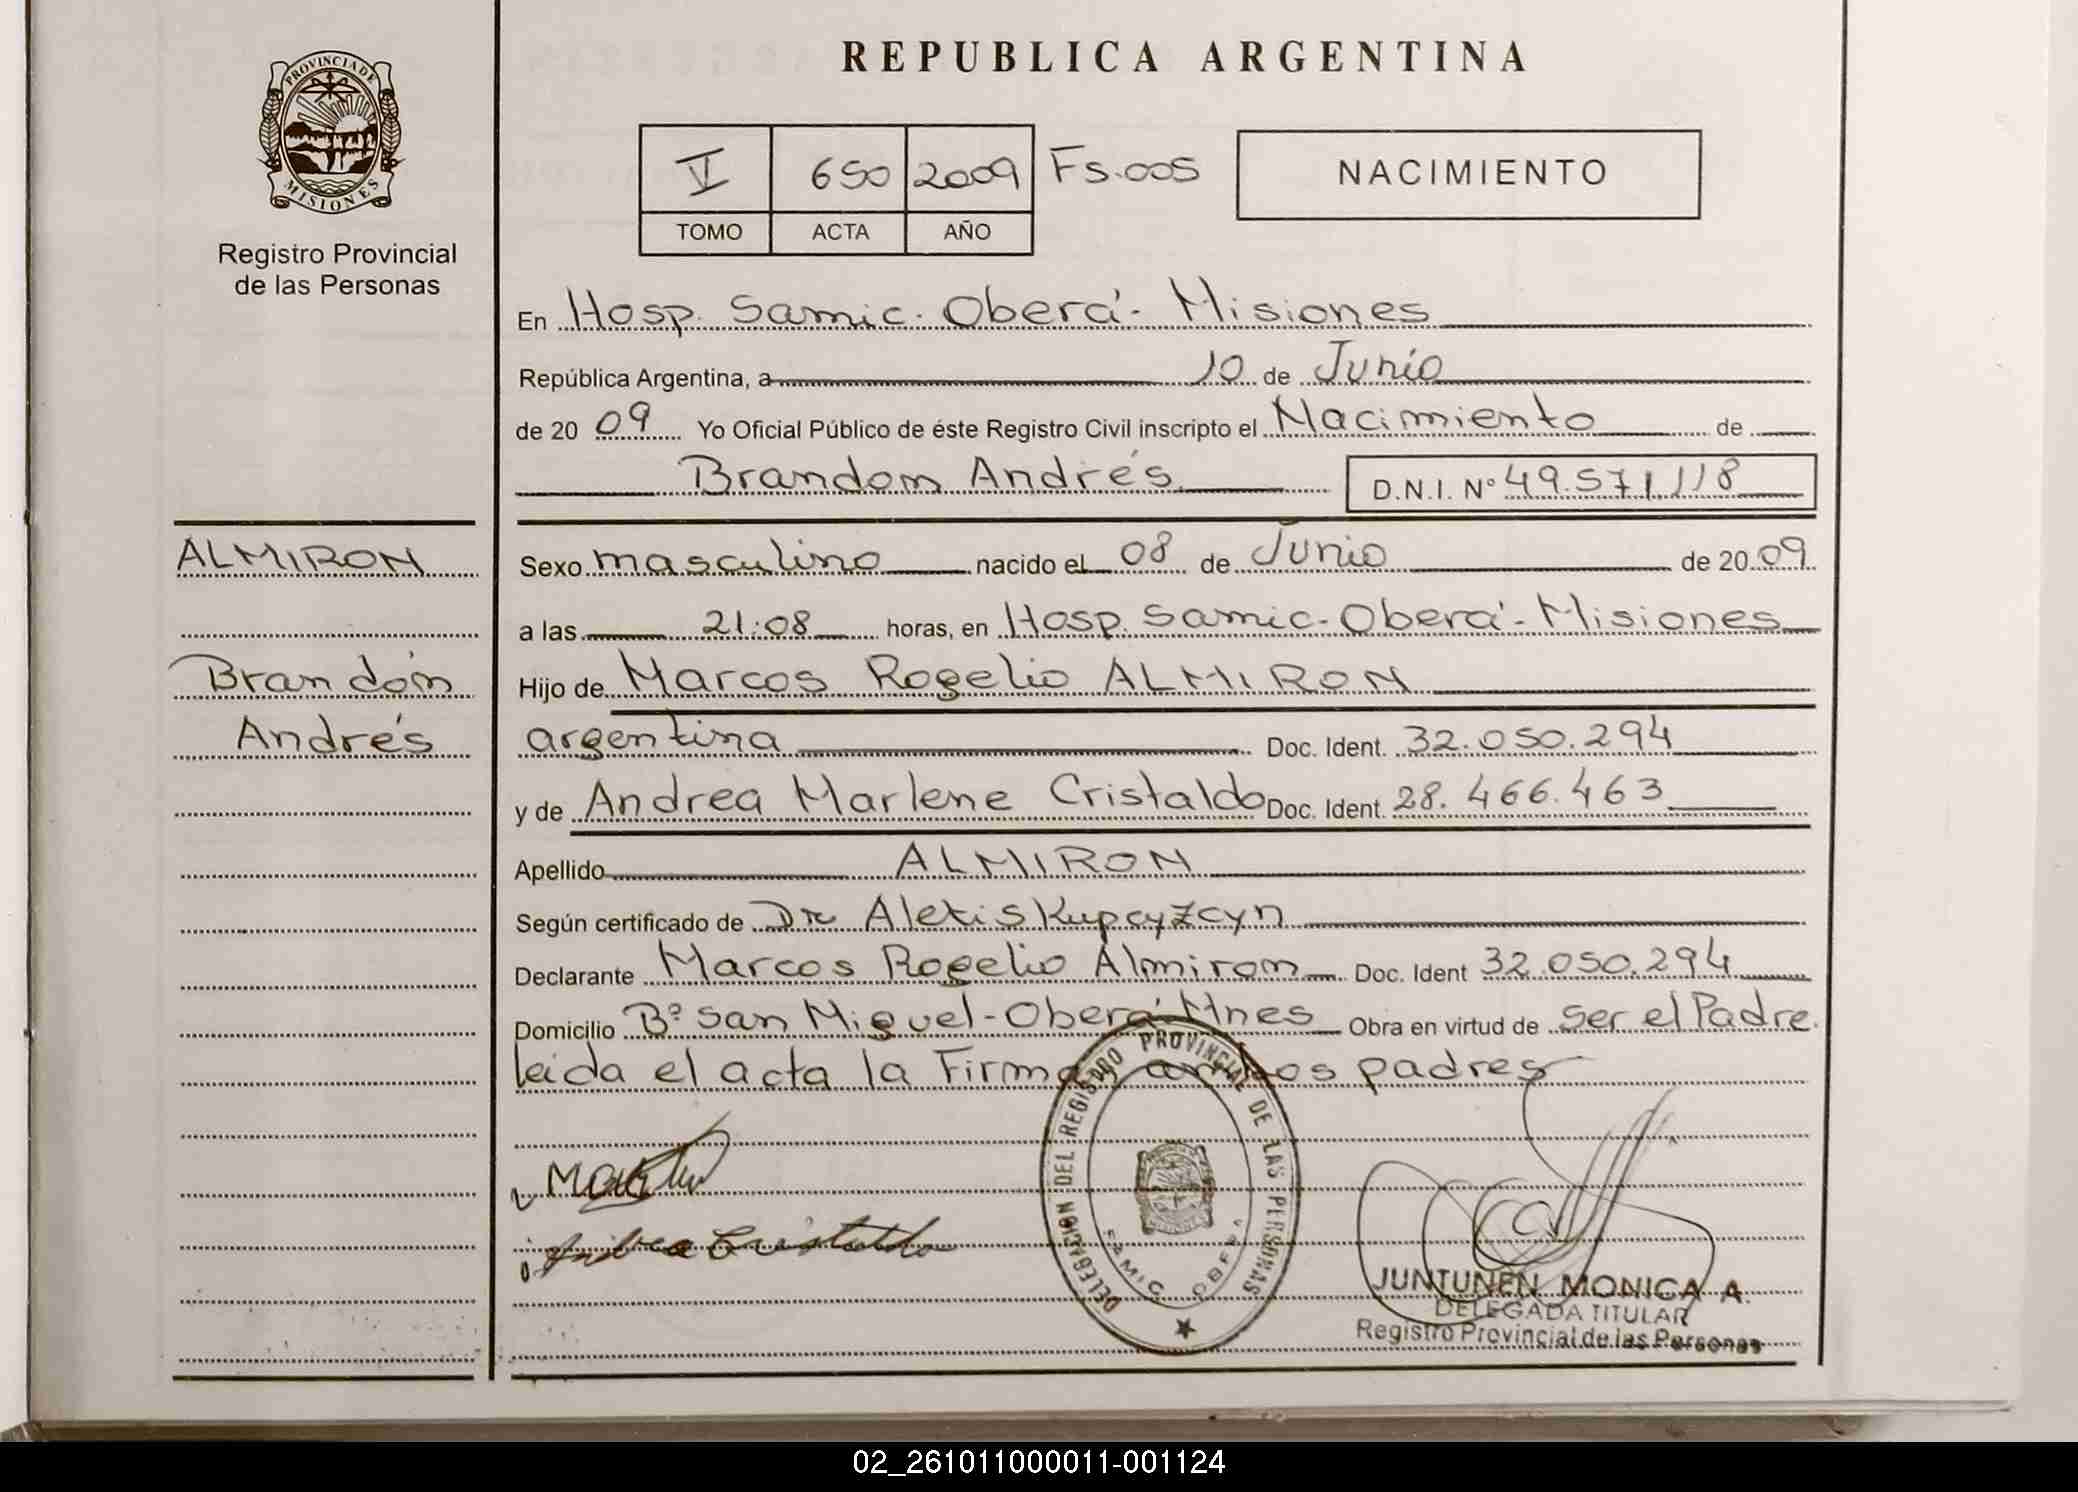 REPUBLICA ARGENTINA
PROVINCIA DE
MISIONES
Registro Provincial
de las Personas
V 650 2009 Fs.005
TOMO ACTA AÑO
NACIMIENTO
En Hosp. Samic. Oberá - Misiones
República Argentina, a 10 de Junio
de 20 09 Yo Oficial Público de éste Registro Civil inscripto el Nacimiento de
Brandon Andrés D.N.I. Nº 49.571.118
ALMIRON
Brandón
Andrés
Sexo masculino nacido el 08 de Junio de 20 09
a las 21:08 horas, en Hosp. Samic - Oberá - Misiones
Hijo de Marcos Rogelio ALMIRON
argentina Doc. Ident. 32.050.294
y de Andrea Marlene Cristaldo Doc. Ident. 28.466.463
Apellido ALMIRON
Según certificado de Dr. Alexis Kupcyzcyn
Declarante Marcos Rogelio Almiron Doc. Ident 32.050.294
Domicilio Bº San Miguel - Oberá Mnes Obra en virtud de ser el Padre.
leida el acta la Firman ambos padres
Andrea Cristaldo
DELEGACION DEL REGISTRO PROVINCIAL DE LAS PERSONAS
SAMIC OBERA
JUNTUNEN MONICA A.
DELEGADA TITULAR
Registro Provincial de las Personas
02_261011000011-001124